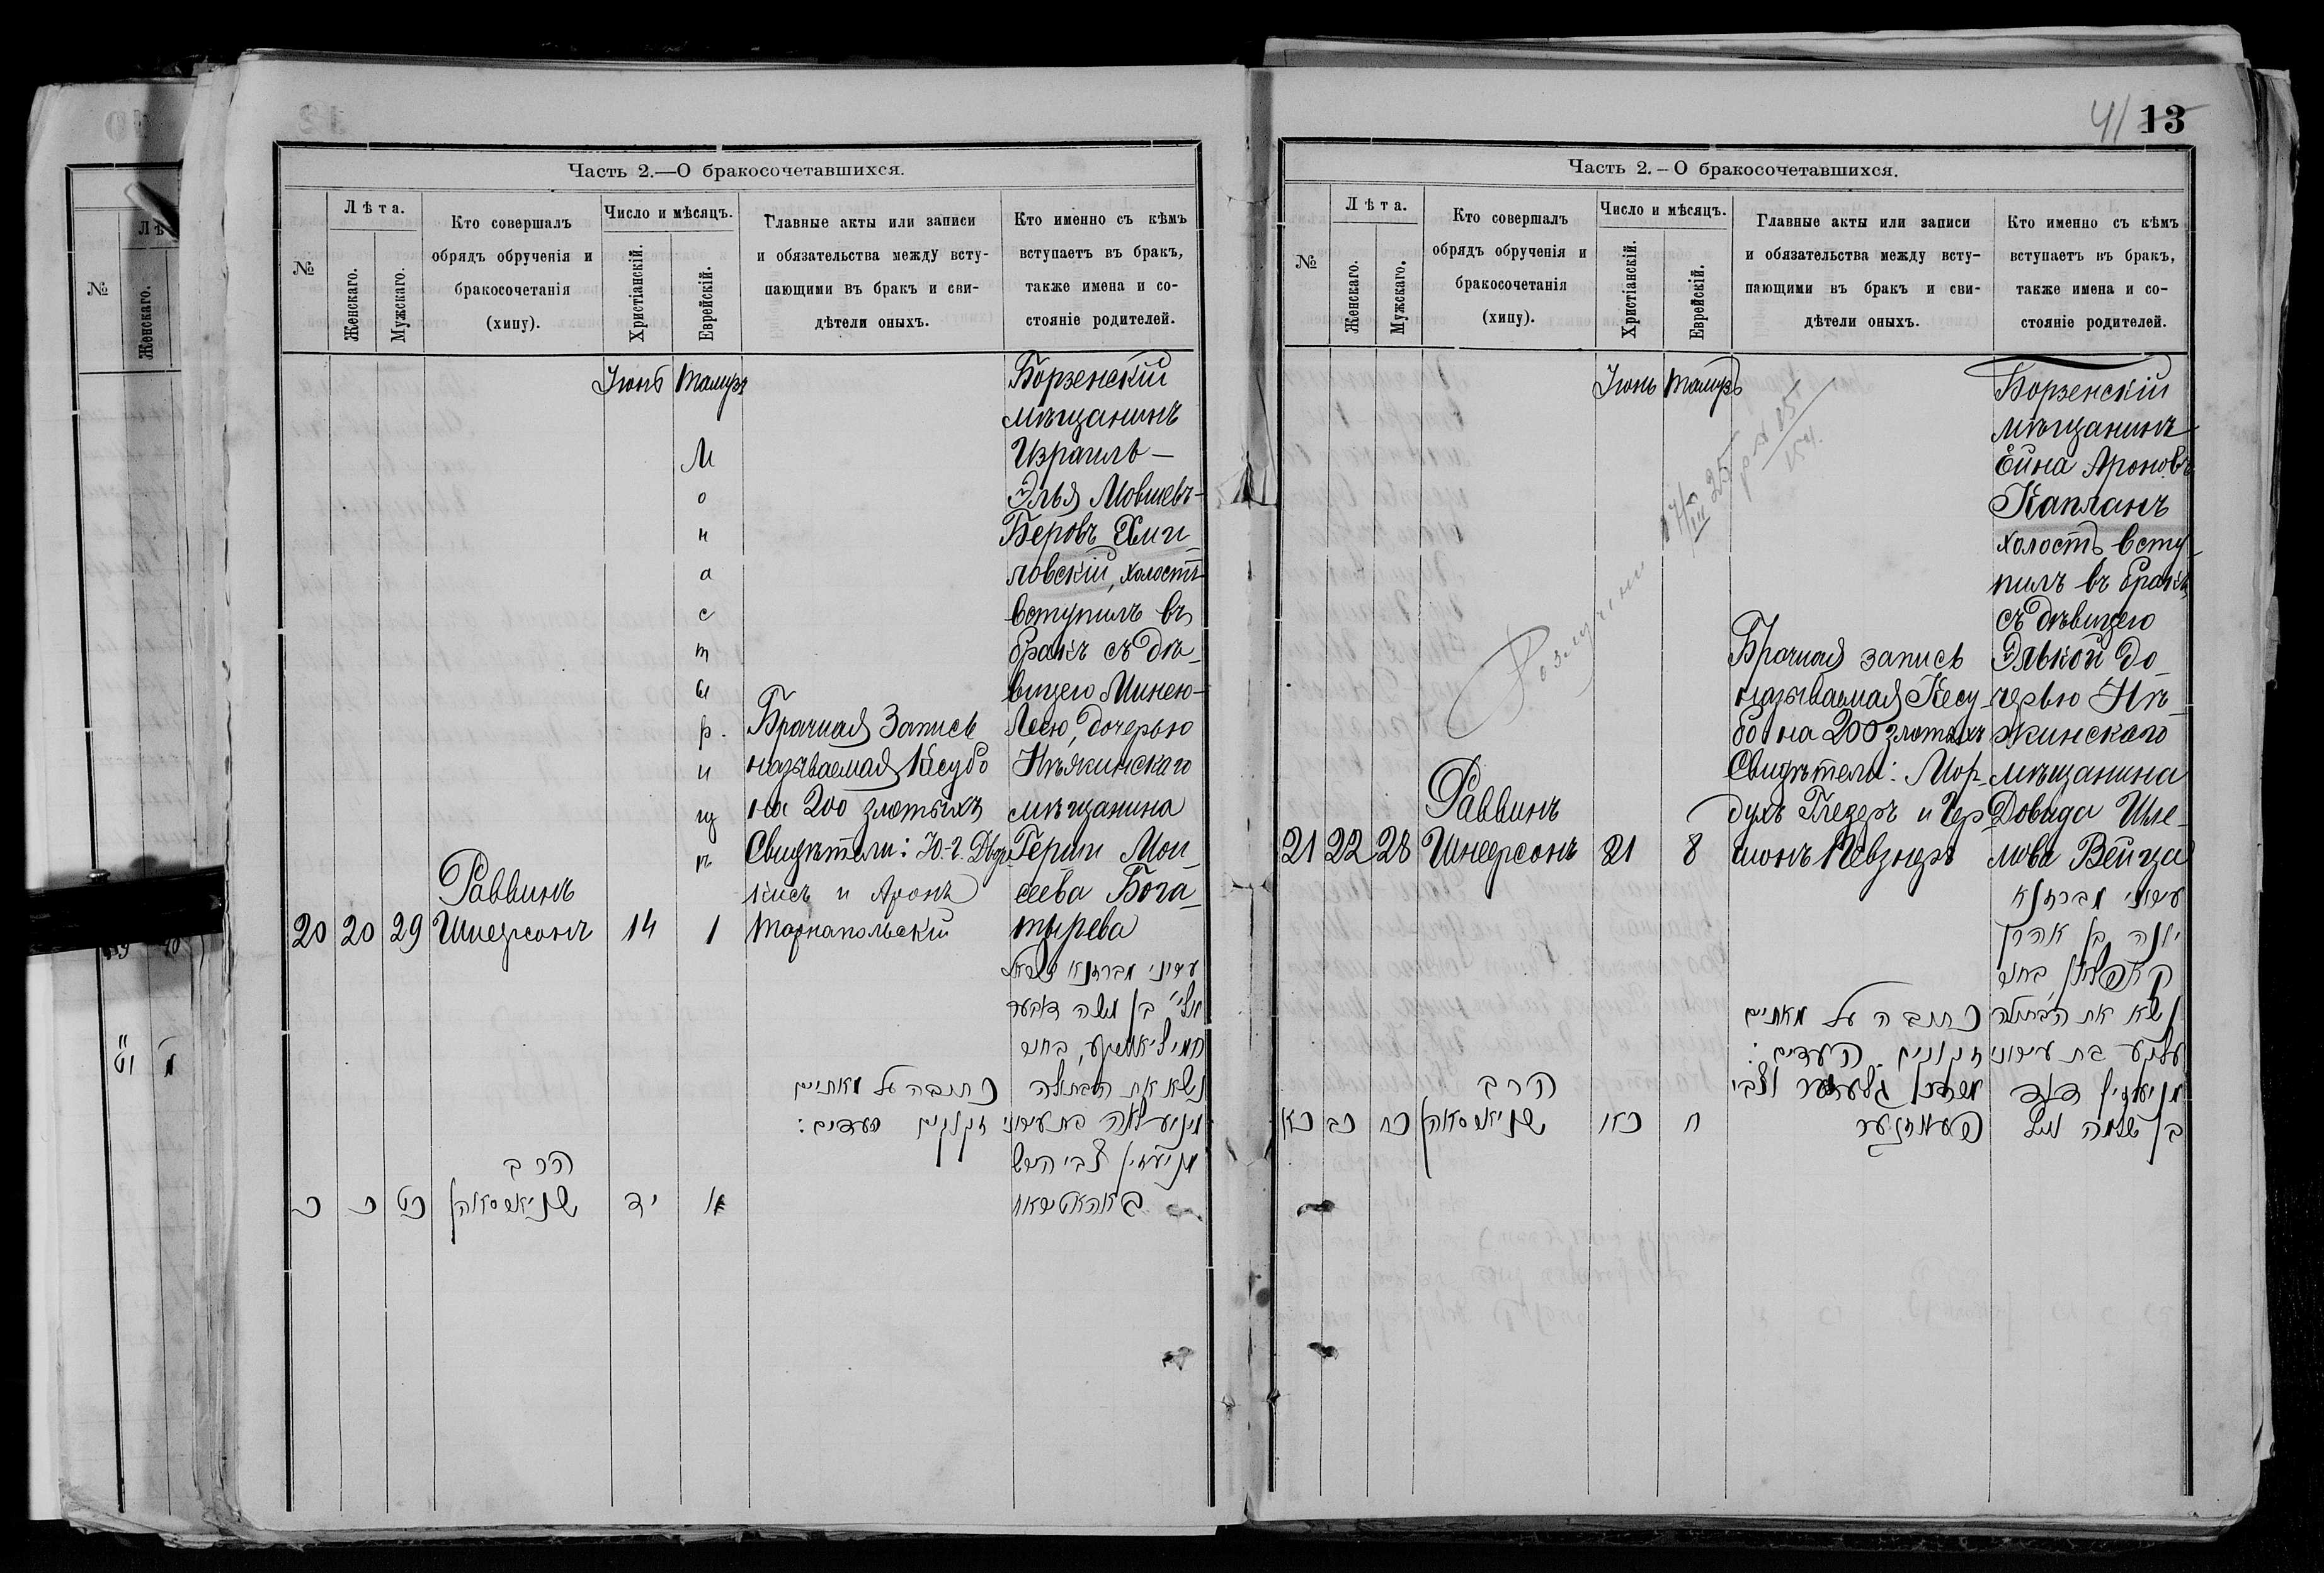 Часть 2.—О бракосочетавшихся.
№
Лѣта.
Женскаго.
Мужскаго.
Кто совершалъ
обрядъ обрученія и
бракосочетанія
(хипу).
Число и мѣсяцъ.
Христіанскій.
Еврейскій.
Главные акты или записи
и обязательства между всту-
пающими въ бракъ и сви-
дѣтели оныхъ.
Кто именно съ кѣмъ
вступаетъ въ бракъ,
также имена и со-
стояніе родителей.
20
20
29
Раввинъ
Шнеерсонъ
Іюнь
14
Тамузъ
1
М
о
н
а
с
т
ы
р.
и
щ
ѣ
Брачная Запись
называемая Кесубо
на 200 злотыхъ
Свидѣтели: Ю.-г. Двор
кисъ и Аронъ
Тарнапольскій
Борзенскій
мѣщанинъ
Израиль-
Элья Мовшевъ-
Беровъ Хми
ловскій, холостъ
вступилъ въ
бракъ съ дѣ-
вицею Минею-
Леею, дочерью
Нѣжинскаго
мѣщанина
Герши Мои
сеева Бога-
тырева
נשא את הבתולה
כתובה על מאתיים
זקוקים העדים:
הרב
שניאורסאהן
כ
כ
כט
יד
א
41
13
Часть 2.-О бракосочетавшихся.
№
Лѣта.
Женскаго.
Мужскаго.
Кто совершалъ
обрядъ обрученія и
бракосочетанія
(хипу).
Число и мѣсяцъ.
Христіанскій.
Еврейскій.
Главные акты или записи
и обязательства между всту-
пающими въ бракъ и сви-
дѣтели оныхъ.
Кто именно съ кѣмъ
вступаетъ въ бракъ,
также имена и со-
стояніе родителей.
21
22
28
Раввинъ
Шнеерсонъ
Іюнь
21
Тамузъ
8
Брачная запись
называемая Кесу-
бо на 200 злотыхъ
Свидѣтели: Мор-
духъ Глезеръ и Гер
шонъ Певзнеръ
Борзенскій
мѣщанинъ
Ейна Ароновъ
Капланъ
холостъ всту-
пилъ въ бракъ
съ дѣвицею
Элькой до
черью Нѣ-
жинскаго
мѣщанина
Довида Шле-
мова Вейца
יונה בן אהרן
קאפלאן בחור
נשא את הבתולה
כתובה על מאתיים
זקוקים העדים:
בן שלמה
הרב
שניאורסאהן
כא
כב
כח
כא
ח